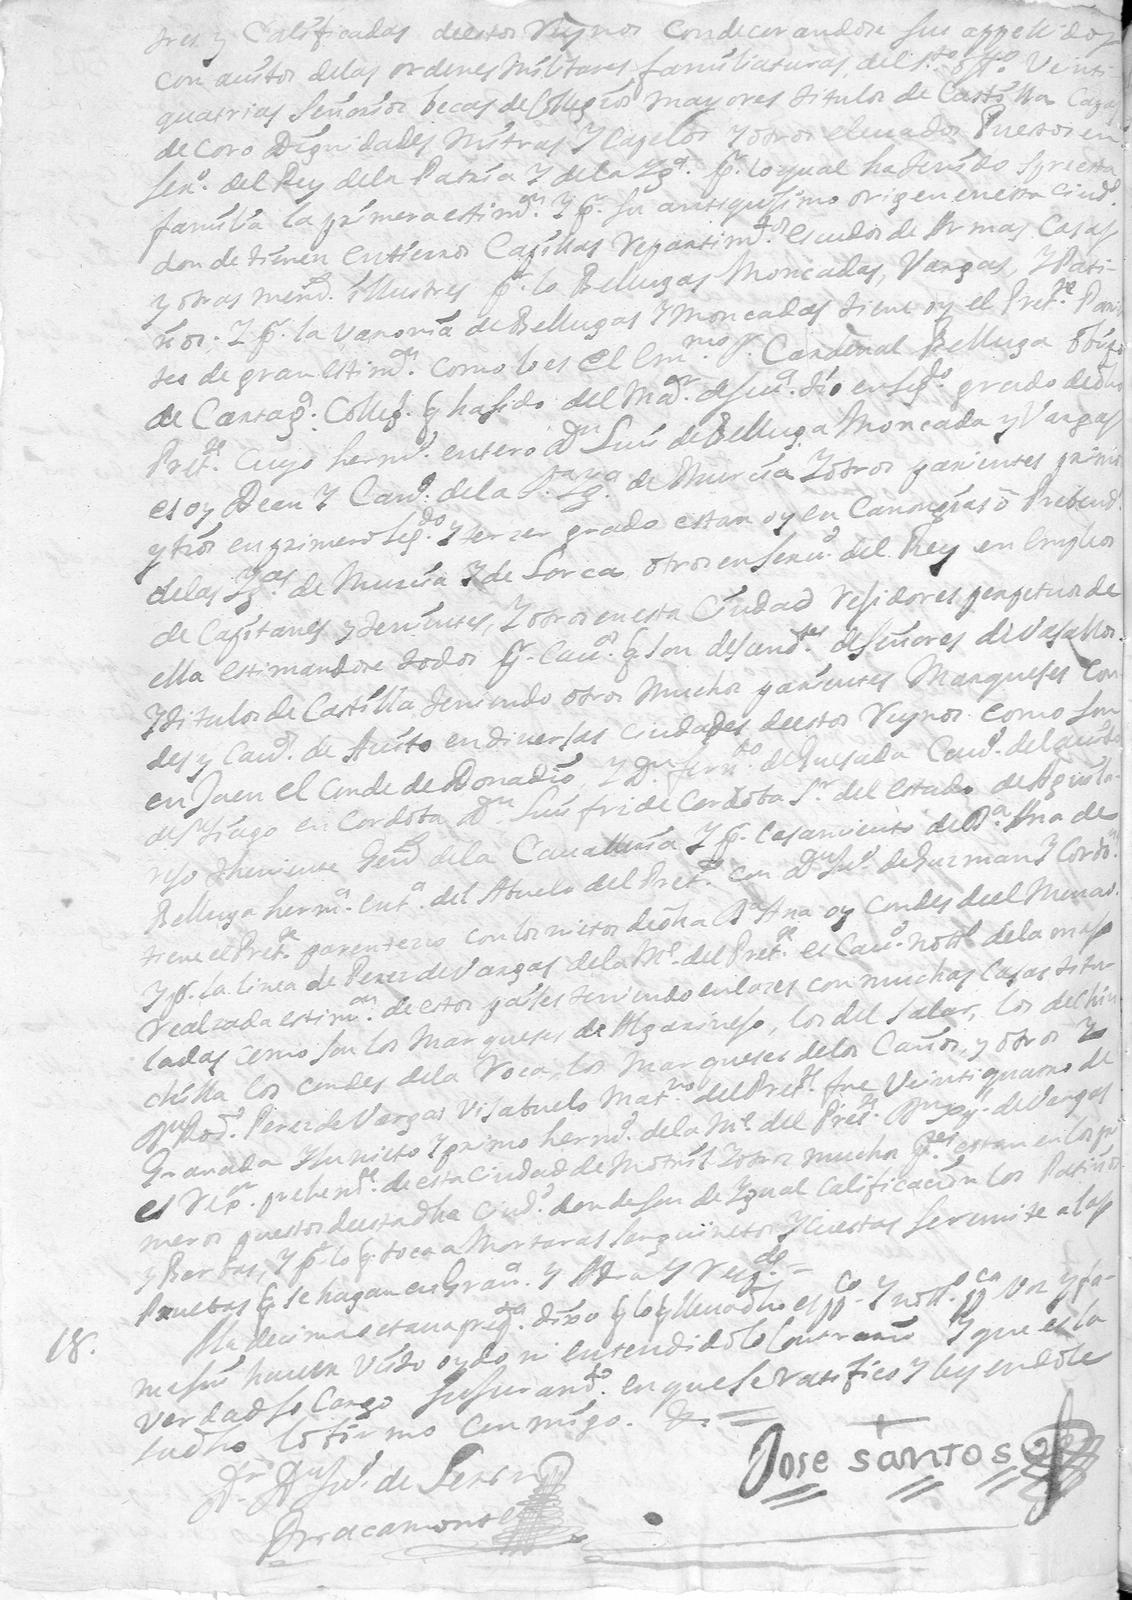 tres y Calificadas de estos Reynos condecorandose sus appellidos
con auitos delas ordenes Militares, familiaturas del Sto. Offo. Veinti-
quatrias Señorios becas de Collegios mayores titulos de Castilla Cayas
de coro Dignidades Mitras y Capelos y otros eleuados Puestos en
seruo. del Rey dela Patria y dela Yga. Pr. lo qual ha tenido spre esta
familia la primera estimon. y pr. su antiquisimo origen en esta ciud.
donde tienen entierros Capillas Repartimtos. escudos de Armas Casas
y otras memos. illustres pr. lo Bellugas Moncadas, Vargas, y Pati-
ños. y pr. la varonia de Bellugas y Moncadas tiene oy el Prete. Parien
tes de gran estimon. como lo es el Emmo. Sr. Cardenal Belluga Obispo
de Cartaga. Collegl. q ha sido del Mor. de Seua. tio en segdo. grado de dho
Prete. cuyo hermo. entero Dn Luis de Belluga Moncada y Vargas
es oy Dean y Cano. dela Sta. Yga. de Murcia y otros parientes primos
y tios en primero segdo. y terzer grado estan oy en Canongias o Prebends.
delas Ygas. de Murcia y de Lorca otros en seruo. del Rey en Empleos
de Capitanes y tenientes, y otros en esta Ciudad Rejidores perpetuos de
ella estimandose todos pr. Cauos. q son desendtes. de Señores de Vasallos
y titulos de Castilla teniendo otros muchos parientes Marqueses Con-
des y Cauos. de Auito en diuersas ciudades de estos Reynos como son
en Jaen el Conde de Donadio, y Dn. ferndo. de Quesada Cauo. del auito
de Stiago en Cordoba Dn Luis frz de Cordoba Sr. del estado de Aguila-
rejo theniente Genl. dela Cavalleria y pr. Casamiento de Da. Ana de
Belluga herma. enta. del Abuelo del Prete. con Dn Ju. de Guzman y Cordo.
tiene el Prete. parentezco con los nietos de dha Da Ana oy condes de el Menao.
y pr. la linea de Perez de Vargas dela Me. del Prete. es Cauo. notto. dela mas
realzada estimon. de estos paises teniendo enlazes con muchas Casas titu-
ladas como son los Marqueses de Algarinejo, los del Salar, los de Chin-
chilla los condes dela Roca, los Marqueses delos Caños, y otros y
Dn Rodo. Perez de Vargas Visabuelo Matno. del Prete. fue Veintiquatro de
Granada y su nieto y primo hermo. dela Me. del Prete. de Vargas
es Rexor. prehemte. de esta ciudad de Motril y otros muchos pes. estan en los pri
meros puestos de esta dha ciud. donde son de ygual calificacion los Patiños
y Berbas, y pr. lo q toca a Mortaras Sanguinetos y Cuestas se remite a las
Pruebas q se hagan en Grana. y Adra y
18. A la decima octaua prega. dixo q lo q lleua dho es puco. y notto. puca voz y fa-
ma sin hauer visto oydo ni entendido lo Contrario y que es la
verdad so cargo su Juramto. en que se ratifico y leyendole
su dho lo firmo conmigo.
Jose Santos
de Perea
Bracamonte